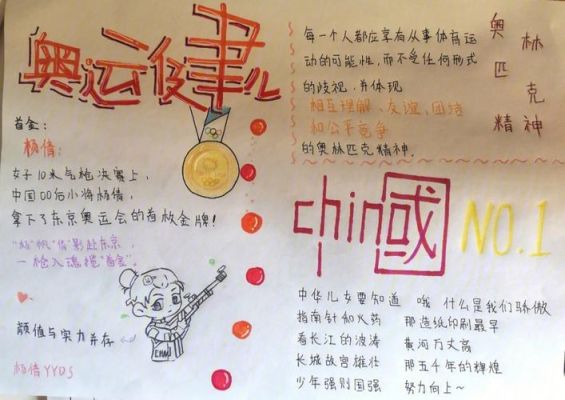 奥运健儿
首金：
杨倩：
女子10米气枪决赛上，
中国00后小将杨倩，
拿下了东京奥运会的首枚金牌！
一枪入魂揽"首金"。
颜值与实力并存
杨倩YYDS
每一个人都应享有从事体育运
动的可能性，而不受任何形式
的歧视，并体现
相互理解、友谊、团结
和公平竞争
的奥林匹克精神.
奥林
匹克
精神
chin国
NO.1
中华儿女要知道 哦 什么是我们骄傲
指南针和火药 那造纸印刷最早
看长江的波涛 黄河万丈高
长城故宫雄壮 那五千年的辉煌
少年强则国强 努力向上~